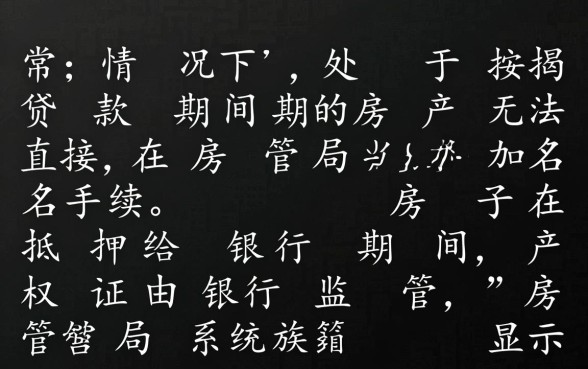 常；情 况下’，处 于 按揭
贷 款 期间期的房 产 无法
直接，在房 管局 加名
名手续。 房 子在
抵 押给 银行 期 间，产
权 证由银行 监 管，”房
管 局 系统族 显示